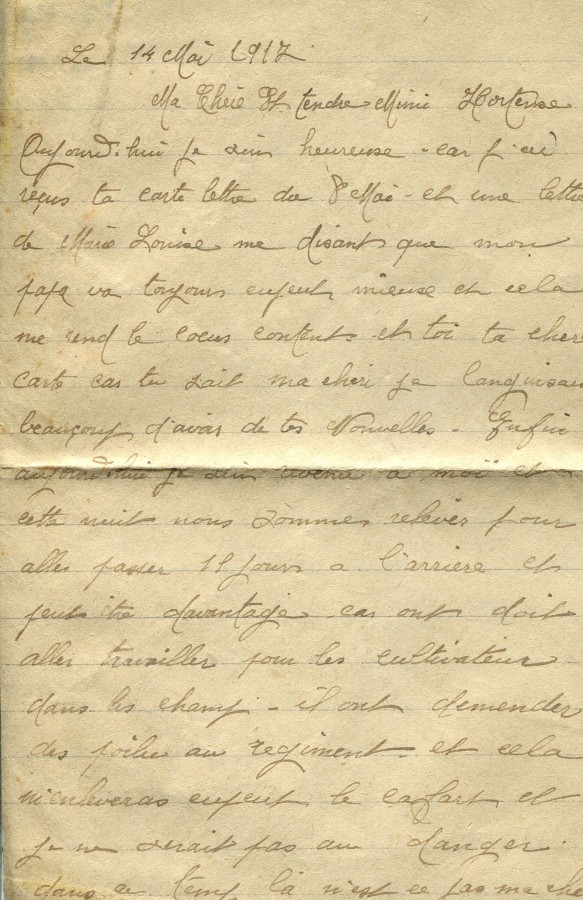 Le 14 Mai 1917
Ma Cherie Et tendre Mimi Hortense
Aujourd'hui je suis heureuse - car j'ai
reçus ta carte lettre du 8 Mai - et une lettre
de Marie Louise me disant que mon
papa va toujours enpeut mieuse et cela
me rend le coeur content - et toi ta chere
carte car tu sait ma cheri je languisais
beaucoup d'avoir de tes Nouvelles - Enfin
aujourd'hui je suis revenu a moi et
cette nuit nous sommes relever pour
aller passer 15 jours a l'arriere et
peut être davantage car ont doit
aller travailler pour les cultivateur
dans les champ - il ont demender
des poilu au regiment - et cela
m'enleveras enpeut le cafart et
je ne serait pas au danger
dans ce temp là n'est ce pas ma che